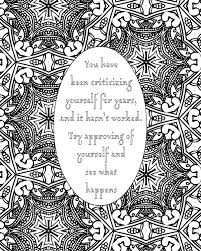 You have
been criticizing
yourself for years,
and it hasn't worked.
Try approving of
yourself and
see what
happens